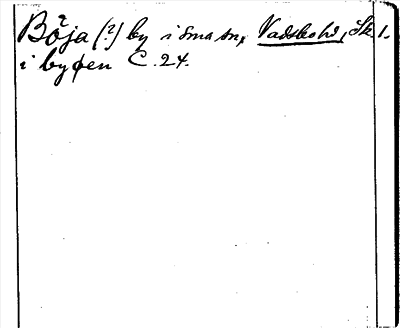 Böja (?) by i sma sn, Vadsbo hd, Sk l.
i byøen C. 24.